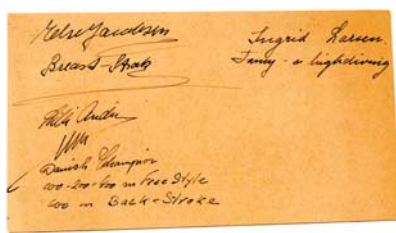 Else Jacobsen
Breast-Stroke
Ingrid Larsen.
Fancy - o highdiving
Danish Champion
100-200-400 m Free Style
100 m Back-Stroke